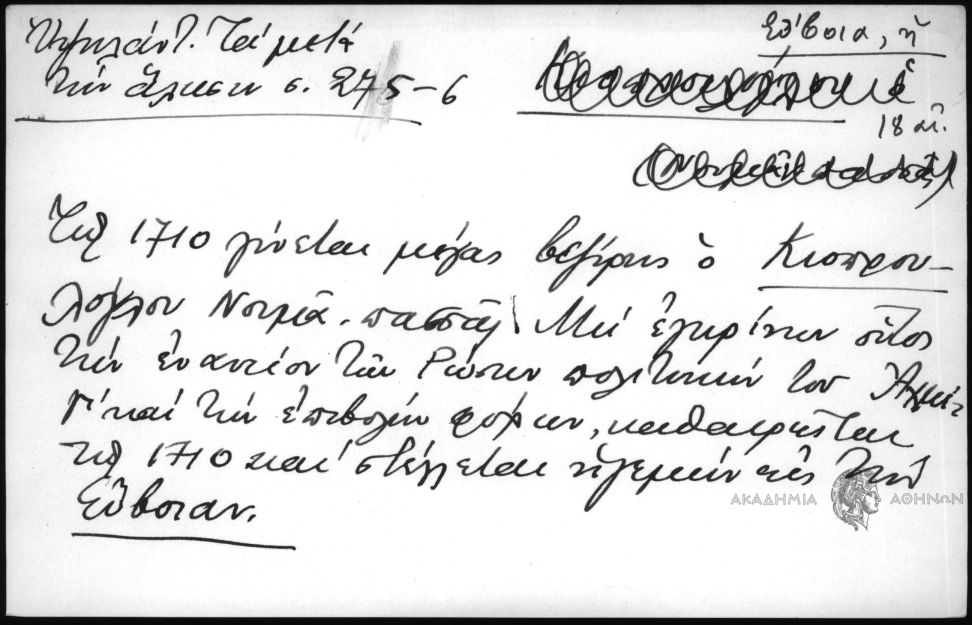 Ὑψηλάντ. Τά μετά
τήν ἅλωσιν σ. 275-6
Εὔβοια, ἡ
18 αἰ.
Τῷ 1710 γίνεται μέγας βεζίρης ὁ Κιοπρου-
λόγλου Νουμᾶν πασσᾶς. Μή ἐγκρίνων οὗτος
τήν ἐναντίον τῶν Ρώσων πολιτικήν τοῦ Ἀχμέτ
Γ' καί τήν ἐπιβολήν φόρων, καθαιρεῖται
τῷ 1710 καί στέλλεται ἡγεμών εἰς τήν
Εὔβοιαν.
ΑΚΑΔΗΜΙΑ ΑΘΗΝΩΝ